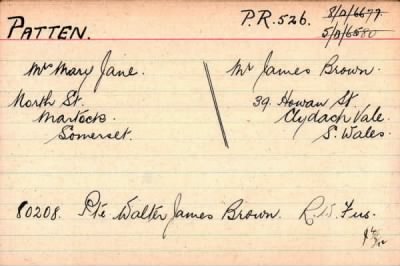 PATTEN.
P.R. 526. 8/D/6679
5/D/6580
Mrs Mary Jane.
North St.
Martock.
Somerset.
Mr James Brown.
39. Howan St.
Clydach Vale.
S. Wales.
80208. Pte Walter James Brown. R. W. Fus.